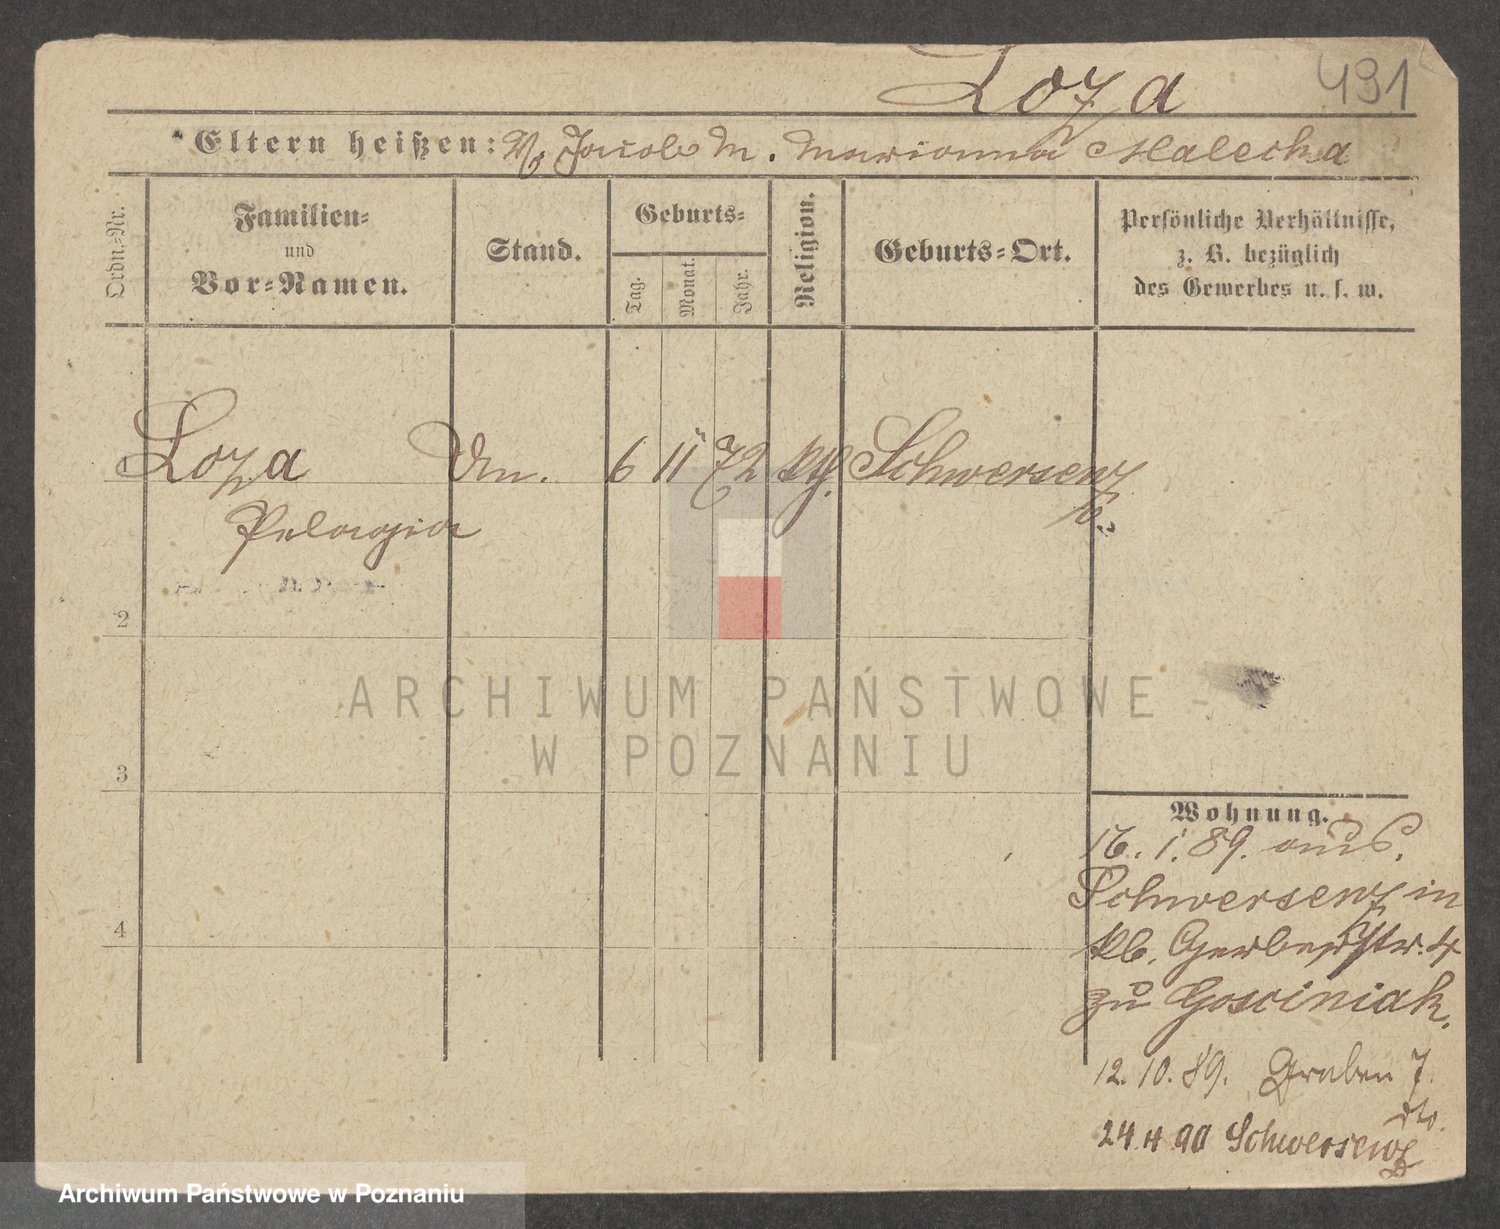 Loza
491
Eltern heißen: V. Jacob M. Marianna Malecka
Ordn.-Nr.
Familien-
und
Vor-Namen.
Stand.
Geburts-
Tag.
Monat.
Jahr.
Religion.
Geburts-Ort.
Persönliche Verhältnisse,
z. B. bezüglich
des Gewerbes u. s. w.
1 Loza 6 11 72 kth. Schwersenz
Pelagia
2
3
4
Wohnung.
16. 1. 89. aus
Schwersenz in
Gerberstr. 4
zu Gosciniak.
12. 10. 89. Graben 7.
24 4 90 Schwersenz
ARCHIWUM PAŃSTWOWE
W POZNANIU
Archiwum Państwowe w Poznaniu